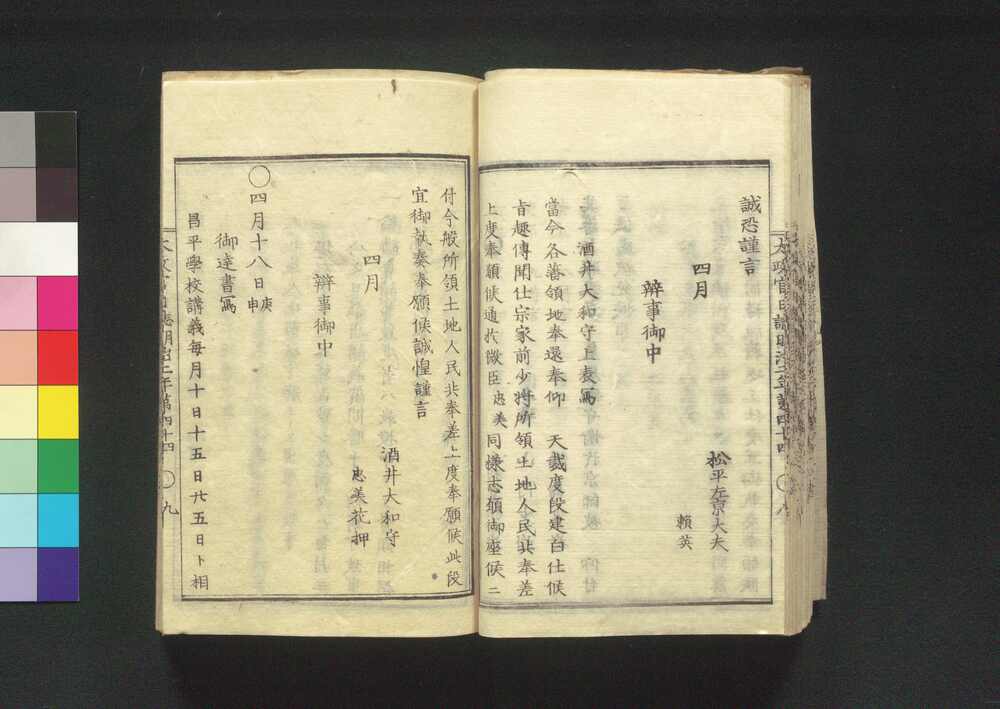 誠恐謹言
四月
松平左京大夫
頼英
辨事御中
酒井大和守上表寫
當今各藩領地奉還奉仰 天裁度段建白仕候
旨趣傳聞仕宗家前少将所領土地人民共奉差
上度奉願候通於微臣忠美同様志願御座候ニ
付今般所領土地人民共奉差上度奉願候此段
宜御執奏奉願候誠惶謹言
四月
酒井大和守
忠美花押
辨事御中
〇四月十八日庚申
御達書寫
昌平學校講義毎月十日十五日廿五日ト相
太政官日誌明治二年第四十四 〇八
四十四 〇九